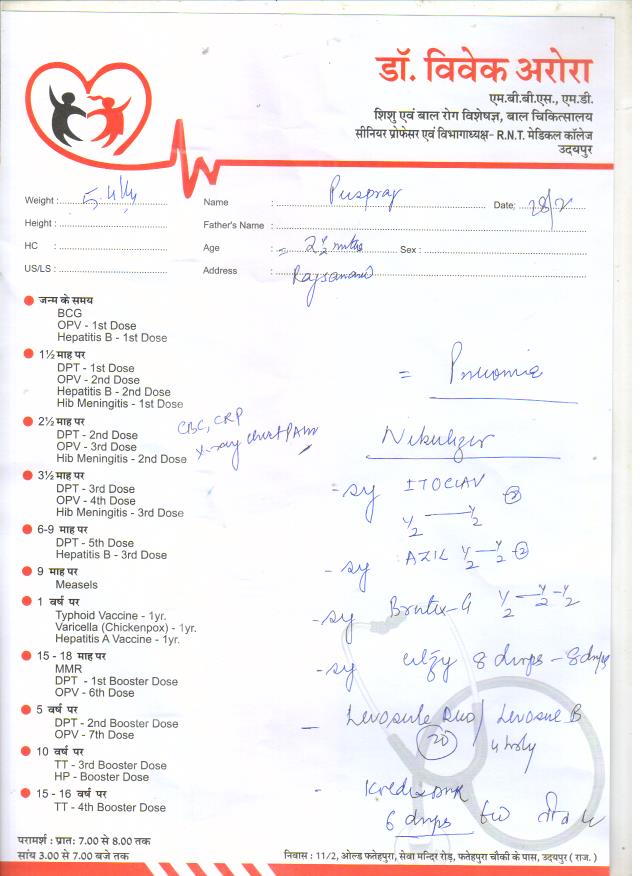 डॉ. विवेक अरोरा
एम.बी.बी.एस., एम.डी.
शिशु एवं बाल रोग विशेषज्ञ, बाल चिकित्सालय
सीनियर प्रोफेसर एवं विभागाध्यक्ष- R.N.T. मेडिकल कॉलेज
उदयपुर
Weight : 5.4 Kg
Name : Puspraj Date; 28/2
Height :
Father's Name :
HC :
Age : = 2½ mths Sex :
US/LS :
Address : Rajsamand
जन्म के समय
BCG
OPV - 1st Dose
Hepatitis B - 1st Dose
1½ माह पर
DPT - 1st Dose
OPV - 2nd Dose
Hepatitis B - 2nd Dose
Hib Meningitis - 1st Dose
2½ माह पर
DPT - 2nd Dose
OPV - 3rd Dose
Hib Meningitis - 2nd Dose
3½ माह पर
DPT - 3rd Dose
OPV - 4th Dose
Hib Meningitis - 3rd Dose
6-9 माह पर
DPT - 5th Dose
Hepatitis B - 3rd Dose
9 माह पर
Measels
1 वर्ष पर
Typhoid Vaccine - 1yr.
Varicella (Chickenpox) - 1yr.
Hepatitis A Vaccine - 1yr.
15 - 18 माह पर
MMR
DPT - 1st Booster Dose
OPV - 6th Dose
5 वर्ष पर
DPT - 2nd Booster Dose
OPV - 7th Dose
10 वर्ष पर
TT - 3rd Booster Dose
HP - Booster Dose
15 - 16 वर्ष पर
TT - 4th Booster Dose
CBC, CRP
X-ray chest PA
= Pneomia
Nebulizer
- sy ITOCLAV
½ — ½
- sy AZIL ½ — ½ (2)
- sy ½ — ½ - ½
- sy 8 drops - 8 drops
- Levosule Duo /
(20) 4 hrly
6 drops
परामर्श : प्रातः 7.00 से 8.00 तक
सांय 3.00 से 7.00 बजे तक
निवास : 11/2, ओल्ड फतेहपुरा, सेवा मन्दिर रोड़, फतेहपुरा चौकी के पास, उदयपुर ( राज. )